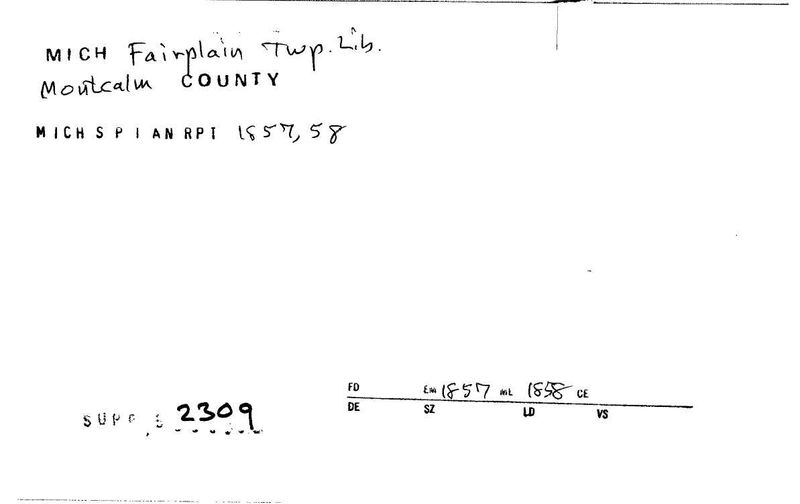 MICH Fairplain Twp. Lib.
Montcalm COUNTY
MICH S P I AN RPT 1857, 58
FD Em 1857 ML 1858 CE
DE SZ LD VS
SUPP 2309